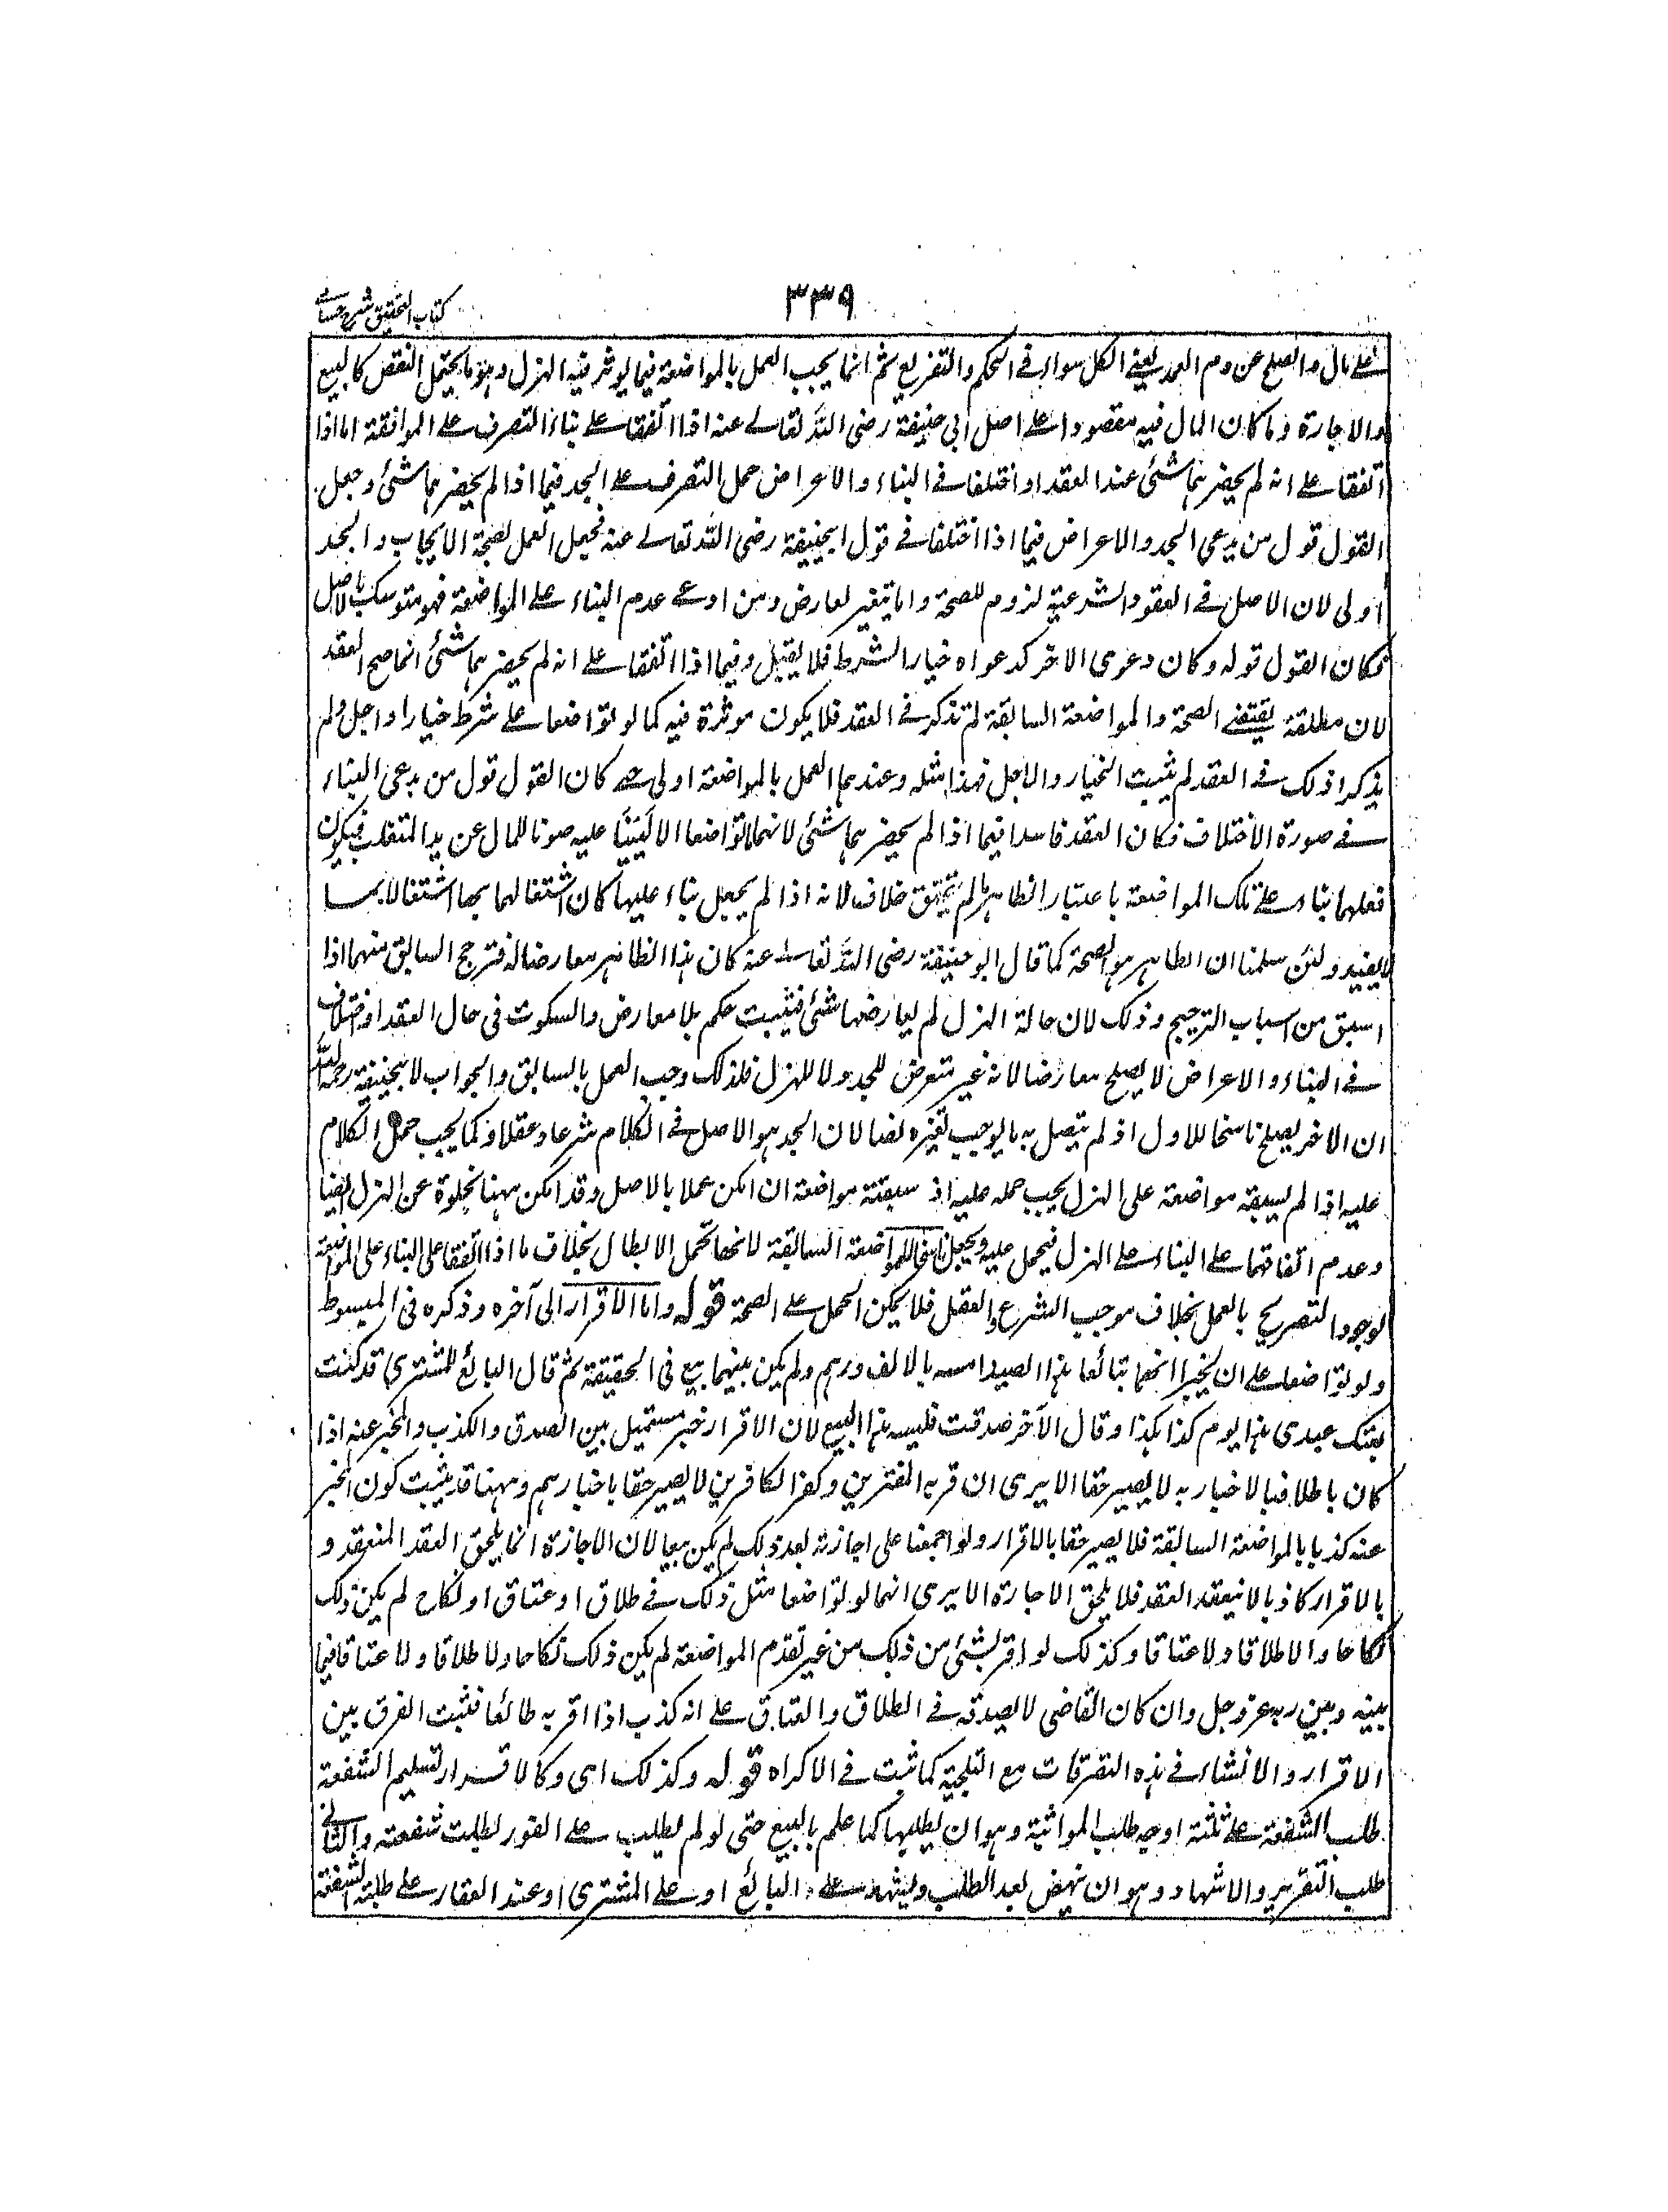 كتاب التحقيق شرح حسامى
٣٣٩
على مال والصلح عن دم العمد يعنى الكل سواء فى الحكم والتفريع ثم انما يجب العمل بالمواضعة فيما يوثر فيه الهزل وهو ما يحتمل النقض كالبيع
والاجارة وما كان المال فيه مقصودا على اصل ابى حنيفة رضى الله تعالى عنه اذا اتفقا على بناء التصرف على الموافقة اما اذا
اتفقا على انه لم يحضرهما شئ عند العقد او اختلفا فى البناء والاعراض حمل التصرف على الجد فيما اذا لم يحضرهما شئ وجعل
القول قول من يدعى الجد والاعراض فيما اذا اختلفا فى قول ابيحنيفة رضى الله تعالى عنه فجعل العمل لصحة الايجاب والجد
اولى لان الاصل فى العقود الشرعية لزوم للصحة وانما يتغير لعارض ومن ادعى عدم البناء على المواضعة فهو متمسك بالاصل
فكان القول قوله وكان دعوى الاخر كدعواه خيار الشرط فلا يقبل وفيما اذا اتفقا على انه لم يحضرهما شئ انما صح العقد
لان مطلقه يقتضى الصحة والمواضعة السابقة لم تذكر فى العقد فلا يكون موثرة فيه كما لو تواضعا على شرط خيار او اجل ولم
يذكرا ذلك فى العقد لم يثبت الخيار والاجل فهذا مثله وعندهما العمل بالمواضعة اولى حتى كان القول قول من يدعى البناء
فى صورة الاختلاف وكان العقد فاسدا فيما اذا لم يحضرهما شئ لانهما ما تواضعا الا ليبنيا عليه صونا للمال عن يد المتغلب فيكون
فعلهما بناء على تلك المواضعة باعتبار الظاهر ما لم يتحقق خلافه لانه اذا لم يجعل بناء عليها كان اشتغالهما بها اشتغالا بما
لا يفيد ولئن سلمنا ان الظاهر هو الصحة كما قال ابو حنيفة رضى الله تعالى عنه كان هذا الظاهر معارضا له فترجح السابق منهما اذا
اسبق من اسباب الترجيح وذلك لان حالة الهزل لم يعارضها شئ فيثبت حكم بلا معارض والسكوت فى حال العقد او اختلاف
فى البناء والاعراض لا يصلح معارضا لانه غير متعرض للجد ولا للهزل فلذلك وجب العمل بالسابق والجواب لابيحنيفة رحمه الله
ان الاخر يصلح ناسخا للاول اذ لم يتصل به ما يوجب تغيره نصا لان الجد هو الاصل فى الكلام شرعا وعقلا وكما يجب حمل الكلام
عليه اذا لم يسبقه مواضعة على الهزل يجب حمله عليه اذ سبقته مواضعة ان امكن عملا بالاصل وقد امكن ههنا لخلوه عن الهزل نصا
وعدم اتفاقهما على البناء على الهزل فيحمل عليه ويجعل ناسخا للمواضعة السابقة لانها تحتمل الابطال بخلاف ما اذا اتفقا على البناء على المواضعة
لوجود التصريح بالعمل بخلاف موجب الشرع والعقل فلا يمكن الحمل على الصحة قوله واما الاقرار الى آخره وذكره فى المبسوط
ولو تواضعا على ان يخبرا انهما تبائعا هذا العبد امس بالالف درهم ولم يكن بينهما بيع فى الحقيقة ثم قال البائع للمشترى قد كنت
بعتك عبدى هذا يوم كذا بكذا وقال الآخر صدقت فليس هذا البيع لان الاقرار خبر متمثل بين الصدق والكذب والمخبر عنه اذا
كان باطلا فبالاخبار به لا يصير حقا الا يرى ان فرية المفترين وكفر الكافرين لا يصير حقا باخبارهم وههنا قد يثبت كون المخبر
عنه كذبا بالمواضعة السابقة فلا يصير حقا بالاقرار ولو اجمعا على اجازته بعد ذلك لم يكن بيعا لان الاجازة انما يلحق العقد المنعقد و
بالاقرار كاذبا لا ينعقد العقد فلا يلحق الاجارة الا يرى انهما لو تواضعا مثل ذلك فى طلاق او عتاق او نكاح لم يكن ذلك
نكاحا ولا طلاقا ولا عتاقا وكذلك لو اقر بشئ من ذلك من غير تقدم المواضعة لم يكن ذلك نكاحا ولا طلاقا ولا عتاقا فيما
بينه وبين ربه عز وجل وان كان القاضى لا يصدقه فى الطلاق والعتاق على انه كذب اذا اقر به طائعا فثبت الفرق بين
الاقرار والانشاء فى هذه التصرفات مع التلجية كما ثبت فى الاكراه قوله وكذلك اى وكالاقرار تسليم الشفعة
طلب الشفعة على ثلثة اوجه طلب المواثبة وهو ان يطلبها كما علم بالبيع حتى لو لم يطلب على الفور بطلت شفعته والثانى
طلب التقرير والاشهاد وهو ان ينهض بعد الطلب ويشهد على البائع او على المشترى او عند العقار على طلبه الشفعة